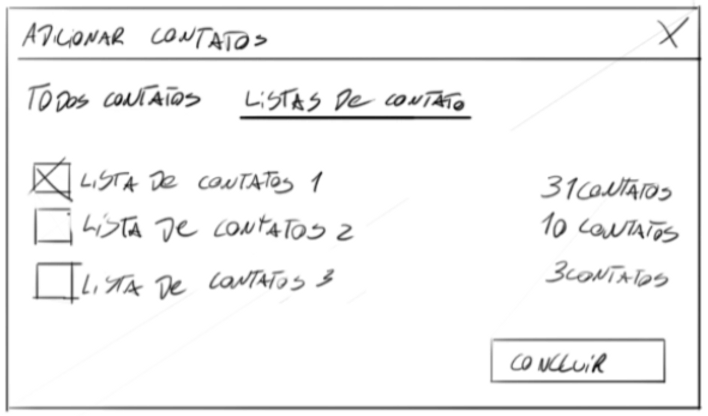 ADICIONAR CONTATOS X
TODOS CONTATOS LISTAS DE CONTATO
LISTA DE CONTATOS 1 31 CONTATOS
LISTA DE CONTATOS 2 10 CONTATOS
LISTA DE CONTATOS 3 3 CONTATOS
CONCLUIR